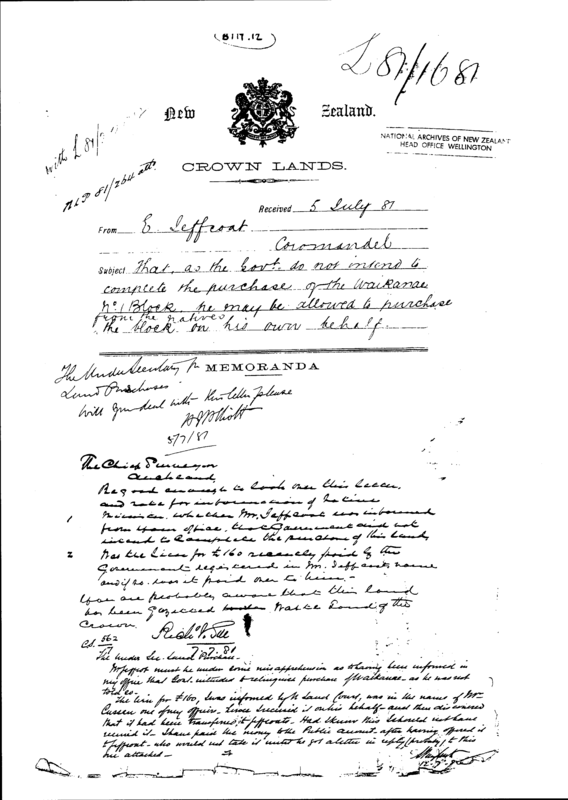 B117.12
L 81/1681
New Zealand.
NATIONAL ARCHIVES OF NEW ZEALAND
HEAD OFFICE WELLINGTON
with L 81/
NLP 81/264 atts.
CROWN LANDS.
Received 5 July 81
From E Jeffcoat
Coromandel
Subject That, as the Govt. do not intend to
complete the purchase of the Waikanae
No. 1 Block, he may be allowed to purchase
from the natives
the block on his own behalf.
MEMORANDA
The Under Secretary for
Land Purchases
Will you deal with this letter please
5/7/81
The Chief Surveyor
Auckland,
Be good enough to look over this letter
and note for information of Native
Minister whether Mr. Jeffcoat was informed
1 from your office, that Government did not
intend to complete the purchase of this land
2 Was the lien for £160 recently paid by the
Government registered in Mr. Jeffcoat's name
and if so, was it paid over to him.
You are probably aware that this land
has been gazetted Waste Land of the
Crown.
562
7 / 7 / 81
The Under Sec. Land Purchase
Mr Jeffcoat must be under some misapprehension as to having been informed in
my office that Govt. intended to relinquish purchase of Waikanae, as he was not
told so.
The lien for £160, I was informed by Land Court, was in the name of Mr
Cussen one of my officers. I received it on his behalf and then discovered
that it had been transferred to Jeffcoat. Had I known this I should not have
received it. I have paid the money to the Public Account, after having offered it
to Jeffcoat who would not take it until he got a letter in reply (probably) to this
one attached